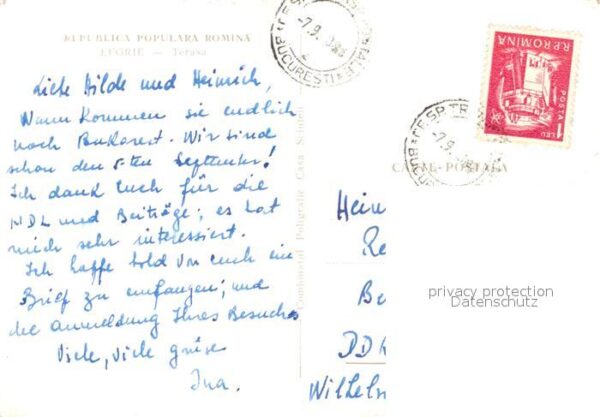 REPUBLICA POPULARA ROMINA
EFORIE — Terasa
Liebe Hilde und Heinrich,
Wann kommen sie endlich
nach Bukarest. Wir sind
schon den 5ten September!
Ich dank Euch für die
NDL und Beiträge; es hat
mich sehr interessiert.
Ich hoffe bald von euch ein
Brief zu emfangen; und
die anmeldung Ihres Besuches
Viele, viele grüse
Ina.
Combinatul Poligrafic Casa Scînteii
BUCUREȘTI
7.9.
R.P. ROMINA
POSTA
1 LEU
7.9.
CARTE POSTALA
Hein
Be
DDR
Wilhelm
privacy protection
Datenschutz